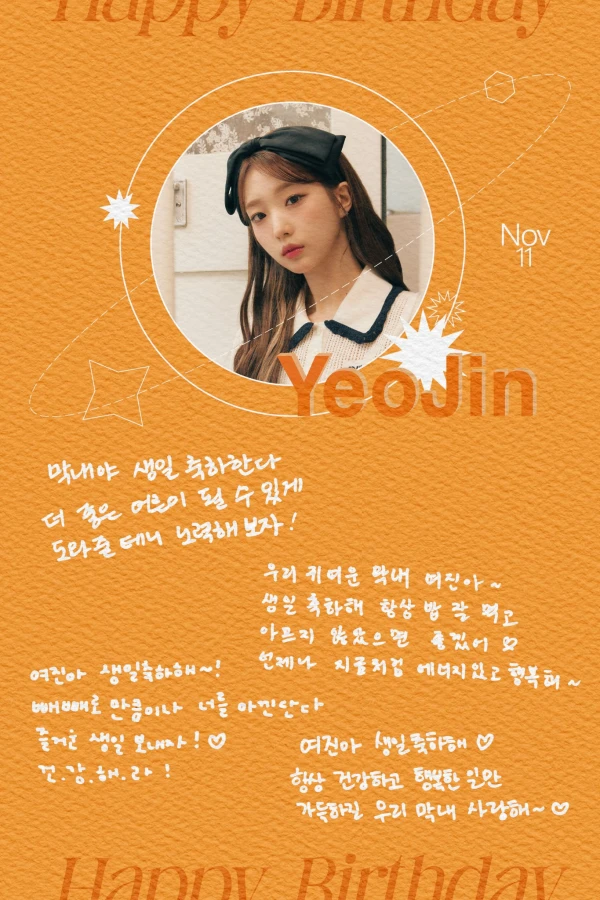 Happy Birthday
Nov
11
YeoJin
막내야 생일 축하한다
더 좋은 어른이 될 수 있게
도와줄 테니 노력해보자!
우리 귀여운 막내 여진아~
생일 축하해 항상 밥 잘 먹고
아프지 않았으면 좋겠어 ♡
언제나 지금처럼 에너지있고 행복해~
여진아 생일축하해~!
빼빼로 만큼이나 너를 아낀단다
즐거운 생일 보내라! ♡
건.강.해.라!
여진아 생일축하해 ♡
항상 건강하고 행복한 일만
가득하길 우리 막내 사랑해~ ♡
Happy Birthday